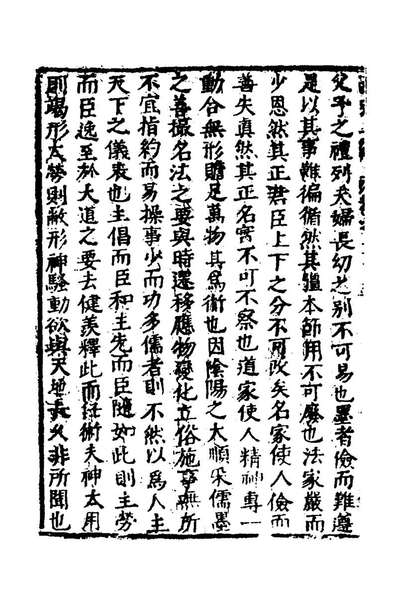 父子之禮列夫婦長幼之别不可易也墨者儉而難遵
是以其事難徧循然其彊本節用不可廢也法家嚴而
少恩然其正君臣上下之分不可改矣名家使人儉而
善失真然其正名實不可不察也道家使人精神專一
動合無形贍足萬物其爲術也因陰陽之大順采儒墨
之善撮名法之要與時遷移應物變化立俗施事無所
不宜指約而易操事少而功多儒者則不然以爲人主
天下之儀表也主倡而臣和主先而臣隨如此則主勞
而臣逸至於大道之要去健羨釋此而任術夫神太用
則竭形太勞則敝形神騷動欲與天地長久非所聞也